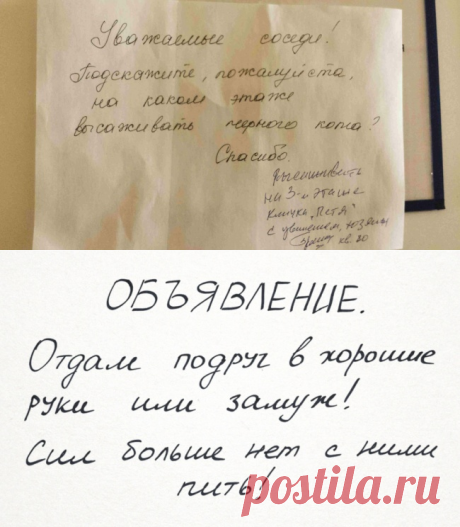 Уважаемые соседи!
Подскажите, пожалуйста,
на каком этаже
высаживать черного кота?
Спасибо.
на 3-м этаже
кличка "Петя"
с уважением, хозяин
кв. 20
ОБЪЯВЛЕНИЕ.
Отдам подруг в хорошие
руки или замуж!
Сил больше нет с ними
пить!
postila.ru